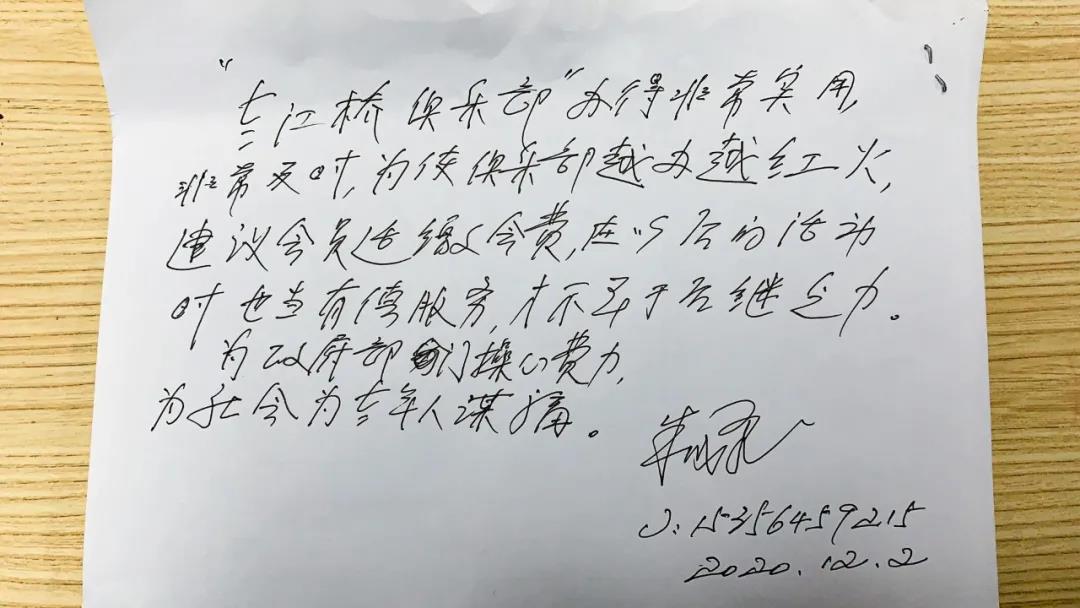 “三江桥俱乐部”办得非常实用,
非常及时,为使俱乐部越办越红火,
建议会员适缴会费,在以后的活动
时也当有偿服务,才不至于后继乏力。
为政府部门操心费力,
为社会为老年人谋福。
: 15356459215
2020.12.2